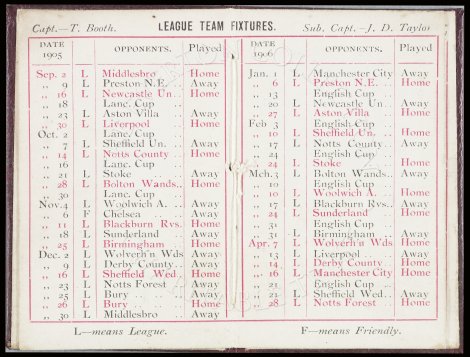 Capt.—T. Booth. LEAGUE TEAM FIXTURES. Sub. Capt.—J. D. Taylor
DATE 1905 OPPONENTS. Played
Sep. 2 L Middlesbro .. Home
,, 9 L Preston N.E. .. Away
,, 16 L Newcastle Un. .. Home
,, 18 Lanc. Cup
,, 23 L Aston Villa .. Away
,, 30 L Liverpool .. Home
Oct. 2 Lanc. Cup
,, 7 L Sheffield Un. .. Away
,, 14 L Notts County .. Home
,, 16 Lanc. Cup
,, 21 L Stoke .. Away
,, 28 L Bolton Wands.. Home
,, 30 Lanc. Cup
Nov. 4 L Woolwich A. .. Away
,, 6 F Chelsea .. Away
,, 11 L Blackburn Rvs. Home
,, 18 L Sunderland .. Away
,, 25 L Birmingham .. Home
Dec. 2 L Wolverh'n Wds Away
,, 9 L Derby County .. Away
,, 16 L Sheffield Wed.. Home
,, 23 L Notts Forest .. Away
,, 25 L Bury .. Away
,, 26 L Bury .. Home
,, 30 L Middlesbro .. Away
L—means League.
DATE 1906 OPPONENTS. Played
Jan. 1 L Manchester City Away
,, 6 L Preston N.E. .. Home
,, 13 English Cup ..
,, 20 L Newcastle Un. .. Away
,, 27 L Aston Villa .. Home
Feb 3 English Cup ..
,, 10 L Sheffield Un. .. Home
,, 17 L Notts County .. Away
,, 24 English Cup ..
,, 24 L Stoke .. Home
Mch. 3 L Bolton Wands.. Away
,, 10 English Cup ..
,, 10 L Woolwich A. .. Home
,, 17 L Blackburn Rvs. Away
,, 24 L Sunderland .. Home
,, 31 English Cup ..
,, 31 L Birmingham .. Away
Apr. 7 L Wolverh'n Wds. Home
,, 13 L Liverpool .. Away
,, 14 L Derby County .. Home
,, 16 L Manchester City Home
,, 21 English Cup ..
,, 21 L Sheffield Wed.. Away
,, 28 L Notts Forest .. Home
F—means Friendly.